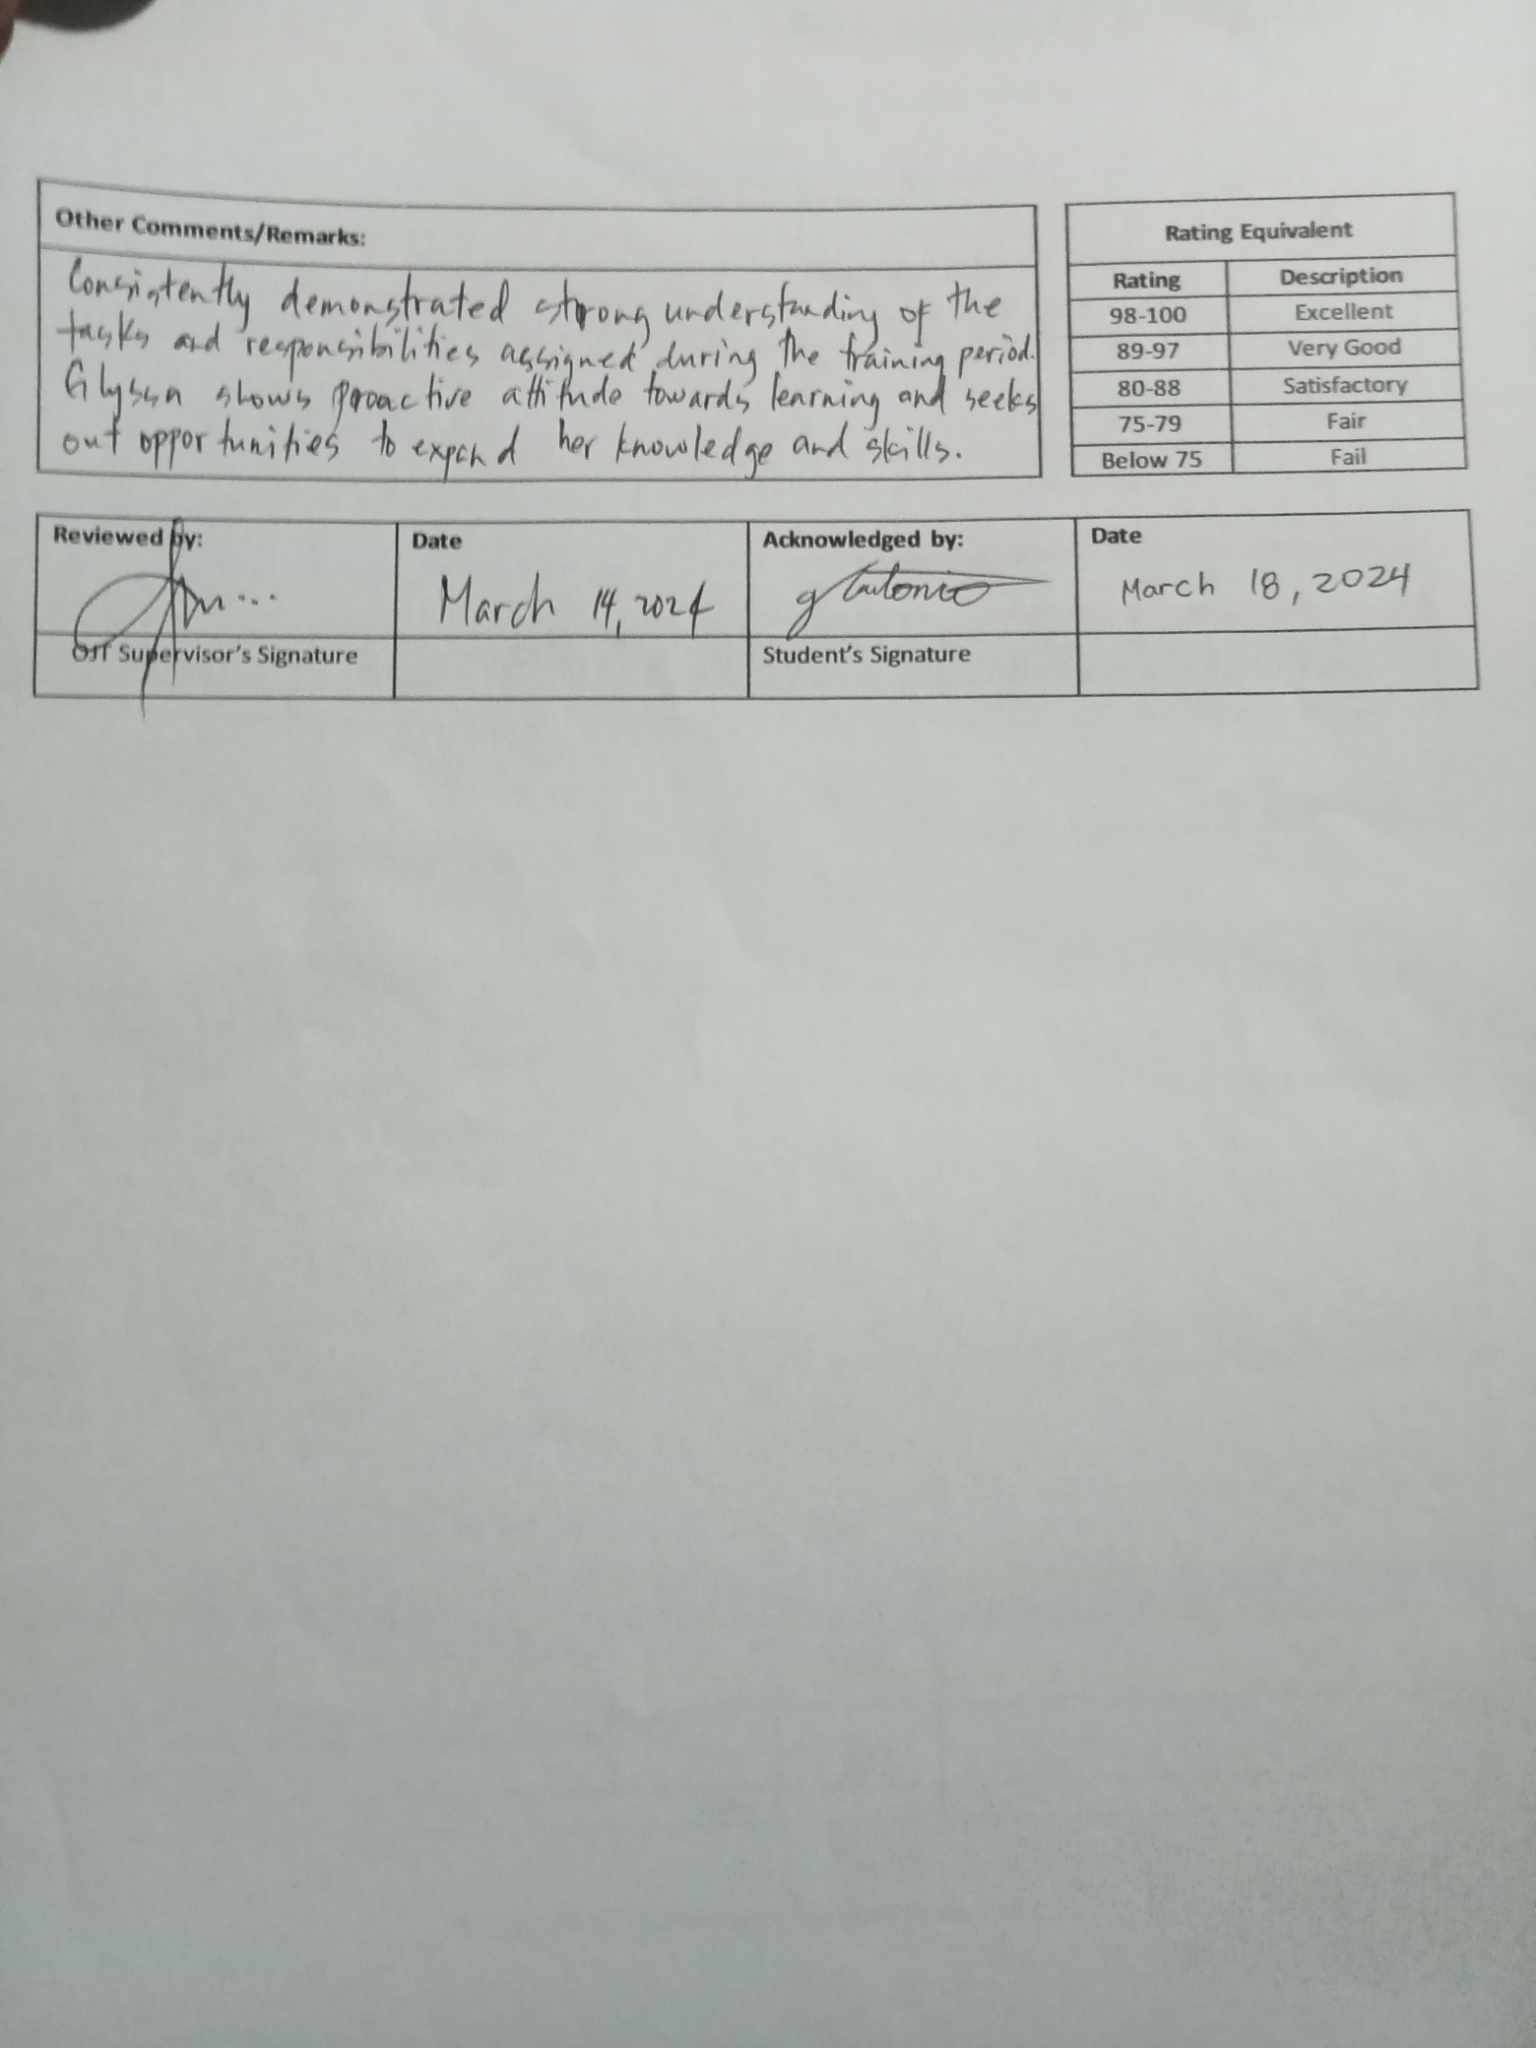 Other Comments/Remarks:
Consistently demonstrated strong understanding of the
tasks and responsibilities assigned during the training period.
Glyssa shows proactive attitude towards learning and seeks
out opportunities to expand her knowledge and skills.
Rating Equivalent
Rating Description
98-100 Excellent
89-97 Very Good
80-88 Satisfactory
75-79 Fair
Below 75 Fail
Reviewed by: Date Acknowledged by: Date
March 14, 2024 gAntonio March 18, 2024
OJT Supervisor's Signature Student's Signature